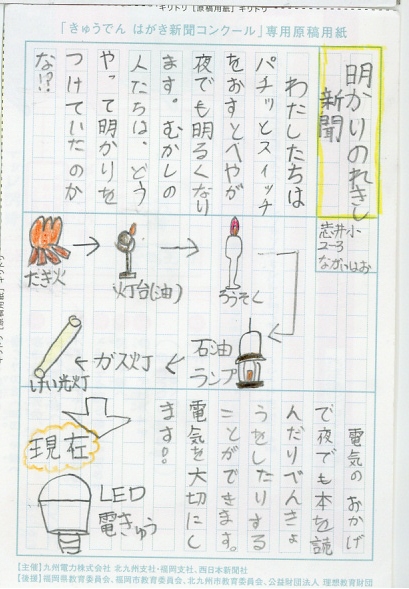 キリトリ【原稿用紙】キリトリ
「きゅうでん はがき新聞コンクール」専用原稿用紙
明かりのれきし
新聞
志井小
2-3
わたしたちは
パチッとスイッチ
をおすとへやが
夜でも明るくなり
ます。むかしの
人たちは、どう
やって明かりを
つけていたのか
な!?
たき火
灯台(油)
ろうそく
石油
ランプ
ガス灯
けい光灯
現在
LED
電きゅう
電気のおかげ
で夜でも本を読
んだりべんきょ
うをしたりする
ことができます。
電気を大切にし
ます!
【主催】九州電力株式会社 北九州支社・福岡支社、西日本新聞社
【後援】福岡県教育委員会、福岡市教育委員会、北九州市教育委員会、公益財団法人 理想教育財団